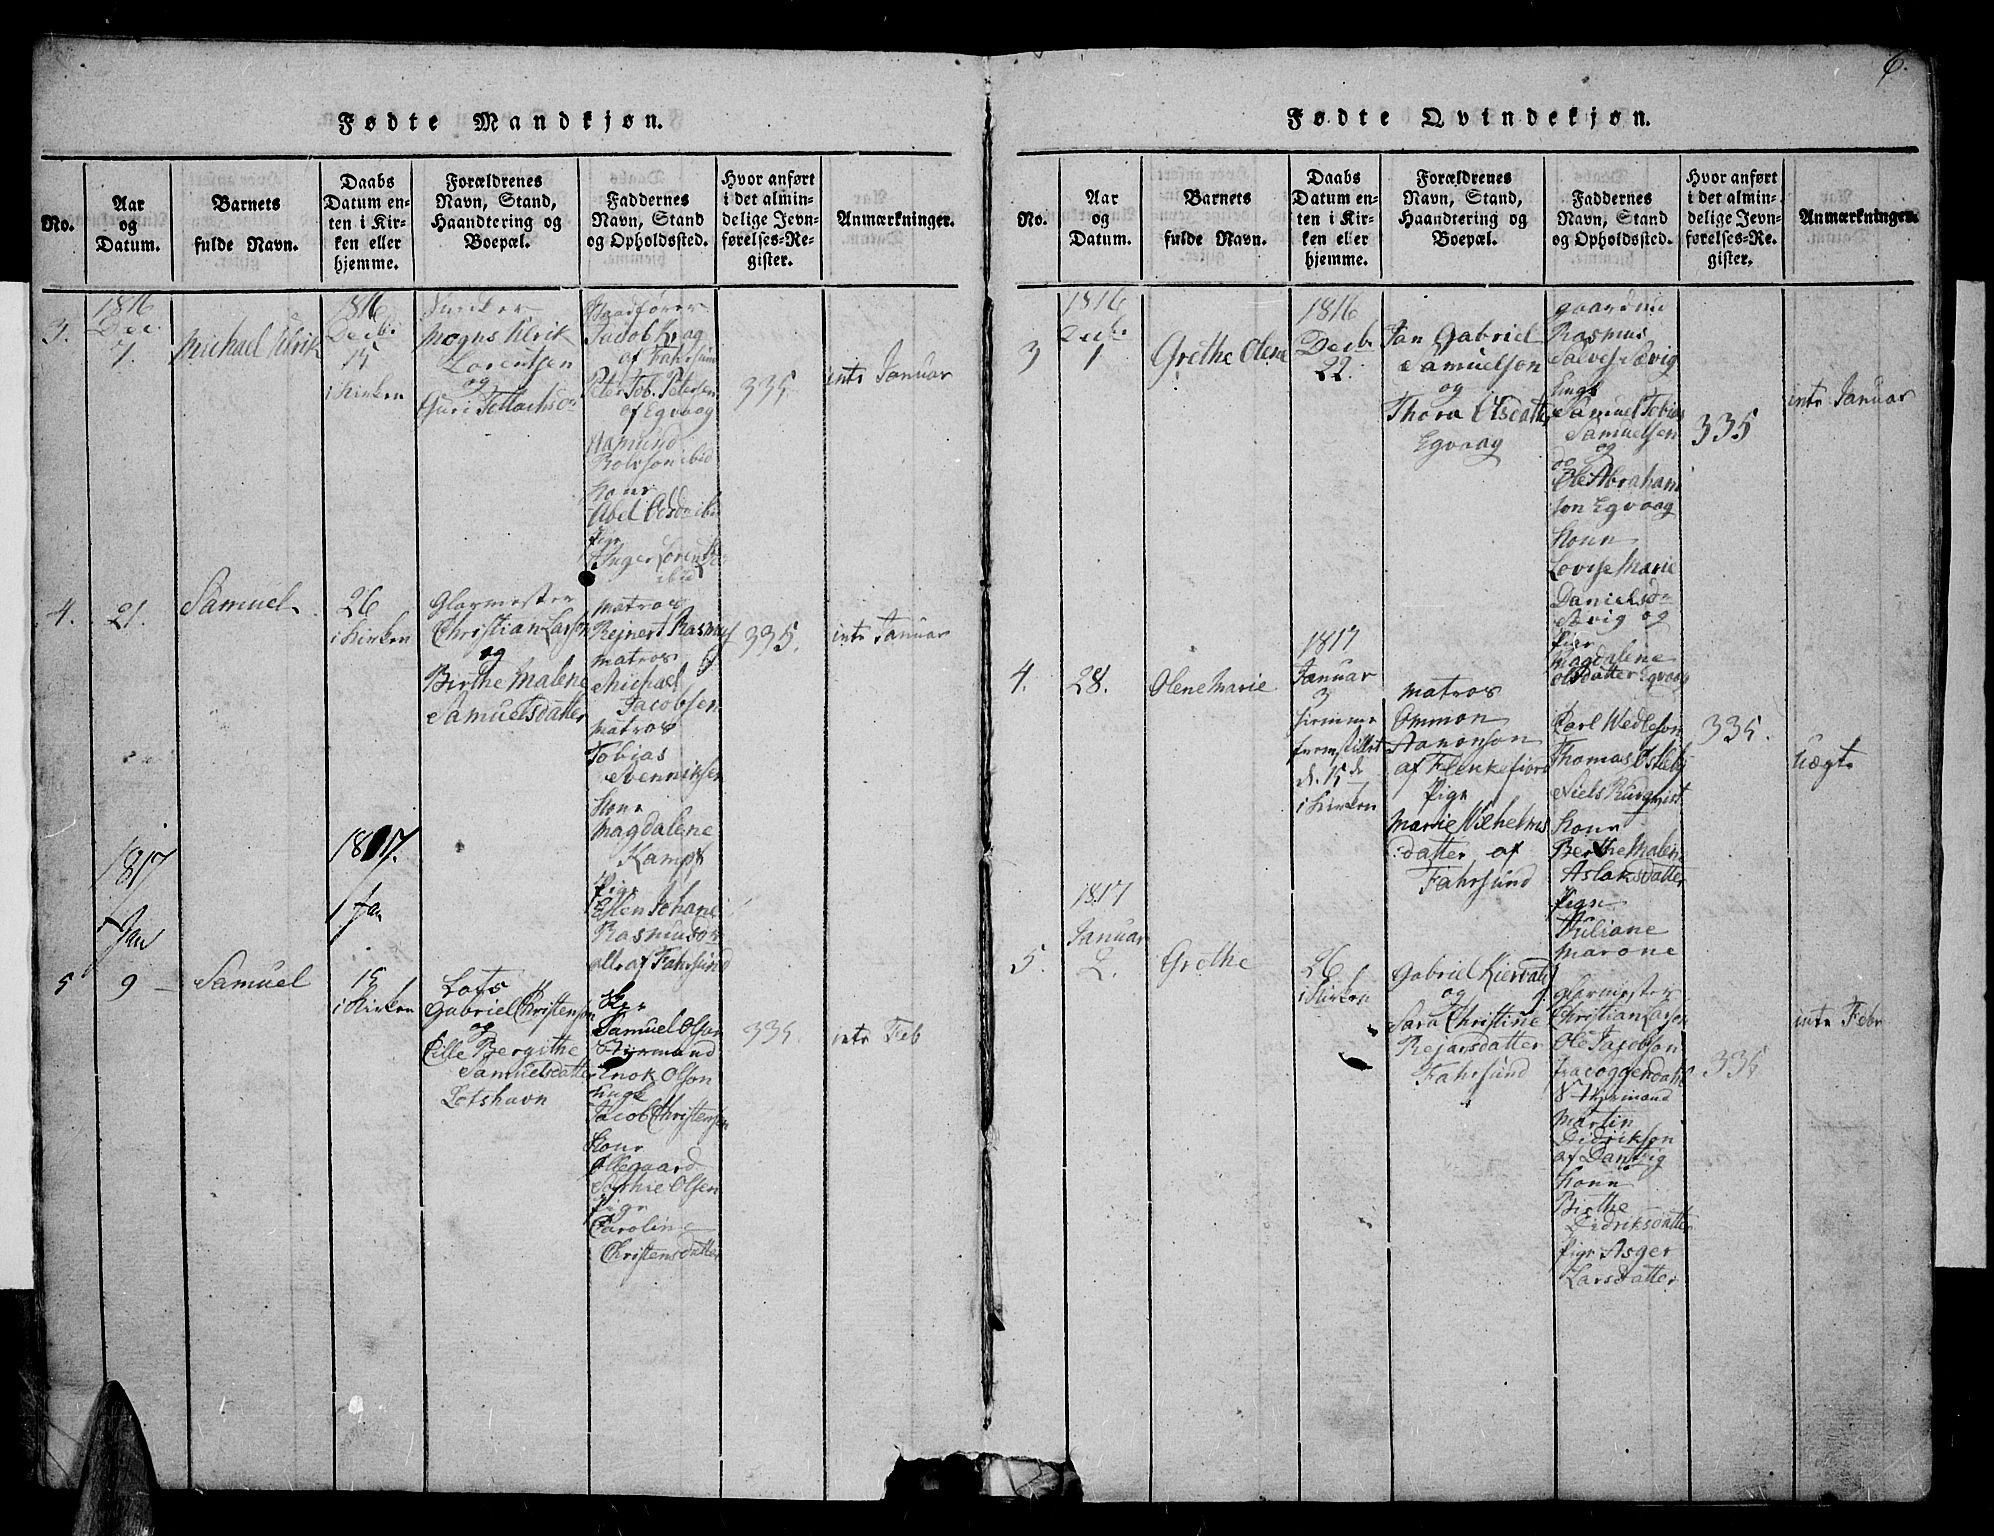 6.
Fødte Mandkjøn.
No.
Aar
og
Datum.
Barnets
fulde Navn.
Daabs
Datum en-
ten i Kir-
ken eller
hjemme.
Forældrenes
Navn, Stand,
Haandtering og
Boepæl.
Faddernes
Navn, Stand
og Opholdssted.
Hvor anført
i det almin-
delige Jevn-
førelses-Re-
gister.
Anmærkninger.
3.
1816
Dec.
7.
Michael Ulrik
1816
Decbr
15
i Kirken
Snedker
Mogns Ulrik
Lorentsen
og
Guri Tollachsdr
Baadfører
Jacob Krag
af Fahrsund
Peter Tob. Petersen
af Egvaag
Hamund
Rolvson ibid
Kone
Abel Olsdr ibid
Pige
Inger Lorentsdr
ibid
335.
intr Januar
4.
21.
Samuel
26
i Kirken
Glarmester
Christian Larsen
og
Birthe Malene
Samuelsdatter
Matros
Rejnert Rasmus
Matros
Michael
Jacobsen
Matros
Tobias
Svenniksen
Kone
Magdalene
Kamp
Pige
Ellen Johane
Rasmusdr
alle af Fahrsund
335.
intr Januar
1817
Jan
5
9
Samuel
1817.
Jan
15
i Kirken
Lots
Gabriel Christensen
og
Cille Bergithe
Samuelsdatter
Lotshavn
Samuel Olsen
Styrmand
Enok Olson
Ungk
Jacob Christensen
Kone
Ollegaard
Sophie Olsen
Pige
Caroline
Christensdatter
335.
intr Feb
Fødte Qvindekjøn.
No.
Aar
og
Datum.
Barnets
fulde Navn.
Daabs
Datum en-
ten i Kir-
ken eller
hjemme.
Forældrenes
Navn, Stand,
Haandtering og
Boepæl.
Faddernes
Navn, Stand
og Opholdssted.
Hvor anført
i det almin-
delige Jevn-
førelses-Re-
gister.
Anmærkninger.
3
1816
Decbr
1
Grethe Olene
1816
Decbr
22.
Jan Gabriel
Samuelson
og
Thora Olsdatter
Egvaag
Gaardmd
Rasmus
Salves Ævig
Ungk
Samuel Tobias
Samuelsen
og
Ole Abraham
son Egvaag
Konn
Lovise Marie
Danielsdr
Ævig og
Pige
Magdalene
Olsdatter Egvaag
335
intr Januar
4.
28.
Olene Marie
1817
Januar
3
hjemme
fremstillet
d. 15de
i Kirken
Matros
Ommon
Aanonson
af Flekkefiord
Pige
Marie Vilhelms
datter af
Fahrsund
Carl Wedleson
Thomas Osteby
Niels Burqvist
Kone
Berthe Malene
Aslaksdatter
Pige
Juliane
Marone
335.
Uægte
1817
Januar
5.
2.
Grethe
26
i Kirken
Gabriel Kiersdal
og
Sara Christine
Rejersdatter
Fahrsund
Glarmester
Christian Larsen
Ole Jacobson
fra Loggendahl
Styrmand
Martin
Didrikson
af Dantzig
Konn
Birthe
Didriksdatter
Pige Asger
Larsdatter
335
intr Febr